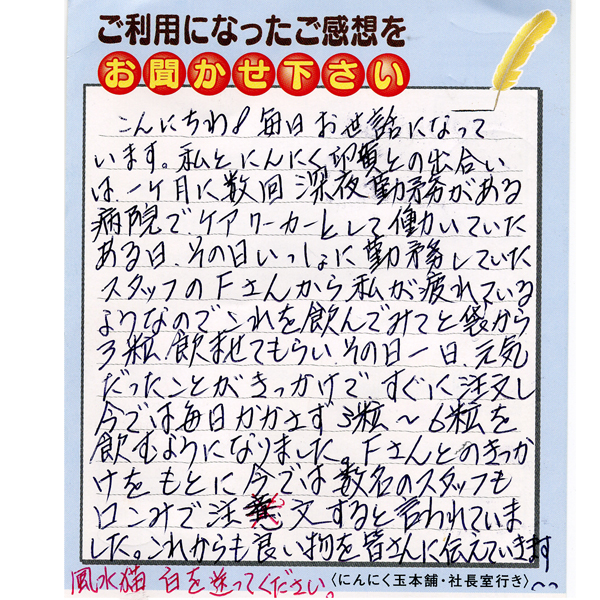 ご利用になったご感想を
お聞かせ下さい
こんにちわ♪毎日お世話になって
います。私とにんにく卵黄との出合い
は、一ケ月に数回深夜勤務がある
病院でケアワーカーとして働いていた
ある日、その日いっしょに勤務していた
スタッフのFさんから私が疲れている
ようなのでこれを飲んでみてと袋から
3粒飲ませてもらい、その日一日、元気
だったことがきっかけで、すぐに注文し
今では毎日かかさず3粒～6粒を
飲むようになりました。Fさんとのきっか
けをもとに今では数名のスタッフも
口コミで注文すると言われていま
した。これからも良い物を皆さんに伝えていきます
風水猫 白を送ってください。
〈にんにく玉本舗・社長室行き〉